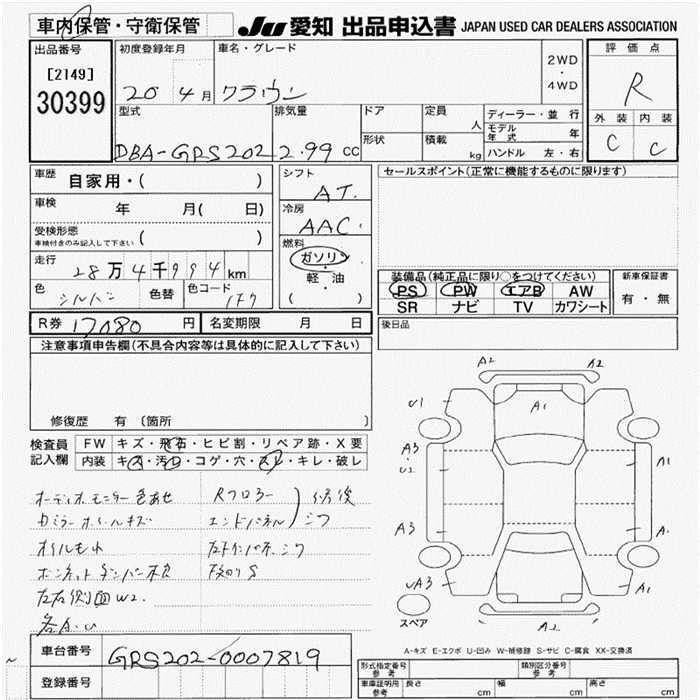 車内保管・守衛保管 JU 愛知 出品申込書 JAPAN USED CAR DEALERS ASSOCIATION
出品番号 初度登録年月 車名・グレード 2WD・4WD 評価点
[2149] 30399 20年 4月 クラウン R
型式 排気量 ドア 定員 人 ディーラー・並行 外装 内装
モデル年式 年
DBA-GRS202 2.99 cc 形状 積載 kg ハンドル 左・右 C C
車歴 自家用・( ) シフト AT. セールスポイント(正常に機能するものに限ります)
車検 年 月( 日) 冷房 AAC
受検形態 車検付きのみ記入して下さい ( ) 燃料 ガソリン・軽油
走行 28万4千994km ( )
装備品(純正品に限り○をつけてください) 新車保証書
色 シルバー 色替 色コード 1F7 PS PW エアB AW 有・無
SR ナビ TV カワシート
R券 17080 円 名変期限 月 日 後日品
注意事項申告欄(不具合内容等は具体的に記入して下さい)
修復歴 有 (箇所 )
検査員記入欄 FW キズ・飛石・ヒビ割・リペア跡・X要
内装 キズ・汚れ・コゲ・穴・スレ・キレ・破レ
オーディオモニター色あせ Rフロアー 修復
カミラーオールキズ エンドパネル シワ
オイルもれ 左リインパネ シワ
ボンネットダンパー不良
左右側面W2.
A2 A2
U1 A1
A3 U2 A1
A3 A.
UA3 A1
スペア A2
A-キズ E-エクボ U-凹み W-補修跡 S-サビ C-腐食 XX-交換済
車台番号 GRS202-0007819
登録番号
形式指定番号 参考 類別区分番号 参考
車庫証明用 参考 長さ cm 幅 cm 高さ cm